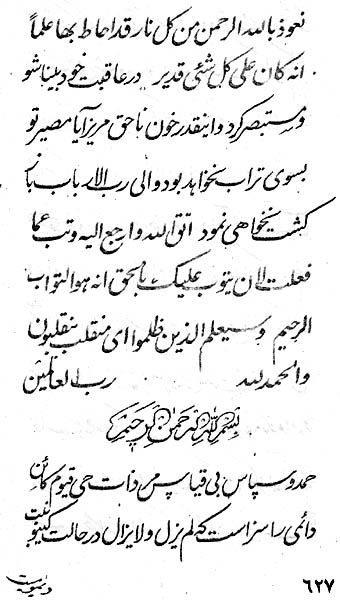 نعوذ بالله الرحمن من كل نار قد احاط بها علماً
انه كان على كل شئی قدير در عاقبت خود بینا شو
و مستبصر گرد و اینقدر خون ناحق مریز آیا مصیر تو
بسوی تراب نخواهد بود و الی رب الارباب باز
گشت نخواهی نمود اتق الله و ارجع الیه و تب عما
فعلت لان یتوب علیک بالحق انه هو التواب
الرحیم و سیعلم الذین ظلموا ای منقلب ینقلبون
والحمد لله رب العالمین
بسم الله الرحمن الرحیم
حمد و سپاس بی قیاس مر ذات حی قیوم کائن
دائمی را سزاست که لم یزل و لا یزال در حالت کینونت
٦٢٧